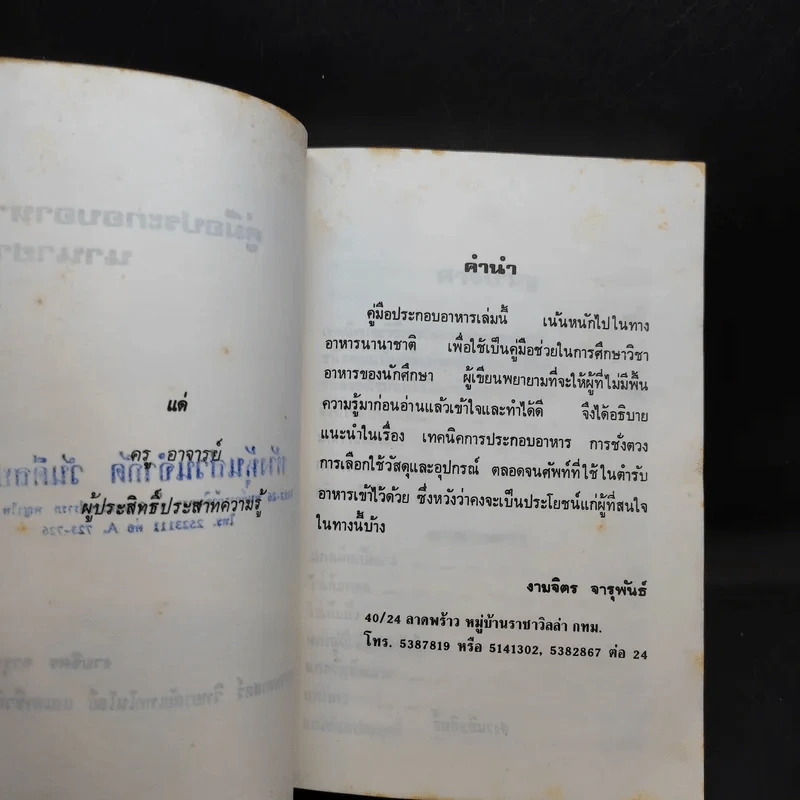 แด่
ครู อาจารย์
ผู้ประสิทธิ์ประสาทความรู้
โทร. 2523111 ต่อ A. 723-726
คำนำ
คู่มือประกอบอาหารเล่มนี้ เน้นหนักไปในทาง
อาหารนานาชาติ เพื่อใช้เป็นคู่มือช่วยในการศึกษาวิชา
อาหารของนักศึกษา ผู้เขียนพยายามที่จะให้ผู้ที่ไม่มีพื้น
ความรู้มาก่อนอ่านแล้วเข้าใจและทำได้ดี จึงได้อธิบาย
แนะนำในเรื่อง เทคนิคการประกอบอาหาร การชั่งตวง
การเลือกใช้วัสดุและอุปกรณ์ ตลอดจนศัพท์ที่ใช้ในตำรับ
อาหารเข้าไว้ด้วย ซึ่งหวังว่าคงจะเป็นประโยชน์แก่ผู้ที่สนใจ
ในทางนี้บ้าง
งามจิตร จารุพันธ์
40/24 ลาดพร้าว หมู่บ้านราชาวิลล่า กทม.
โทร. 5387819 หรือ 5141302, 5382867 ต่อ 24